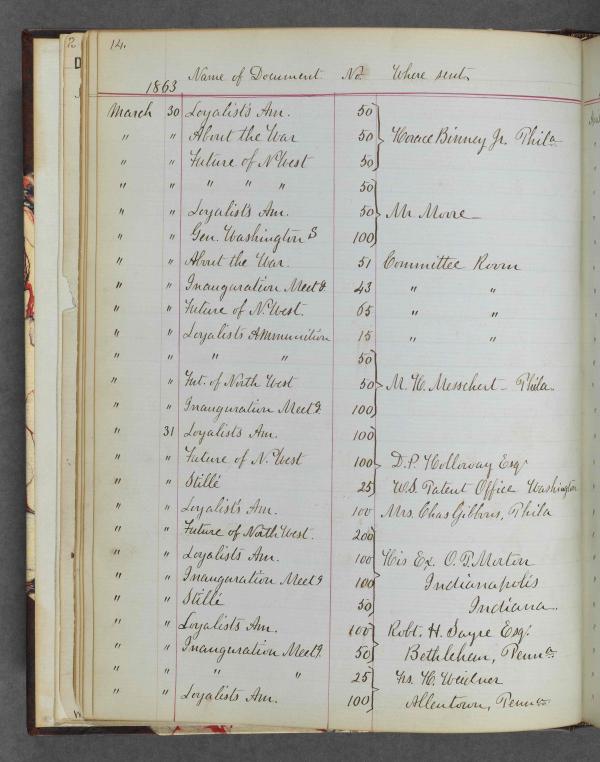 14.
1863 Name of Document No. Where sent
March 30 Loyalist's Am. 50
" " About the War 50 Horace Binney Jr. Phila
" " Future of N. West 50
" " " " " 50
" " Loyalist's Am. 50 Mr. Moore
" " Gen. Washington S 100
" " About the War. 51 Committee Room
" " Inauguration Meetg. 43 " "
" " Future of N. West. 65 " "
" " Loyalists Ammunition 15 " "
" " " " 50
" " Fut. of North West 50 M. H. Messchert - Phila.
" " Inauguration Meetg. 100
" 31 Loyalists Am. 100
" " Future of N. West 100 D. P. Holloway Esqr
" " Stillé 25 U.S. Patent Office Washington
" " Loyalist's Am. 100 Mrs. Chas Gibbons, Phila
" " Future of North West. 200
" " Loyalists Am. 100 His Ex. O. P. Morton
" " Inauguration Meetg 100 Indianapolis
" " Stillé 50 Indiana.
" " Loyalists Am. 100 Robt. H. Sayre Esqr.
" " Inauguration Meetg. 50 Bethlehem, Penna
" " " " 25 H. Weidner
" " Loyalists Am. 100 Allentown, Penna